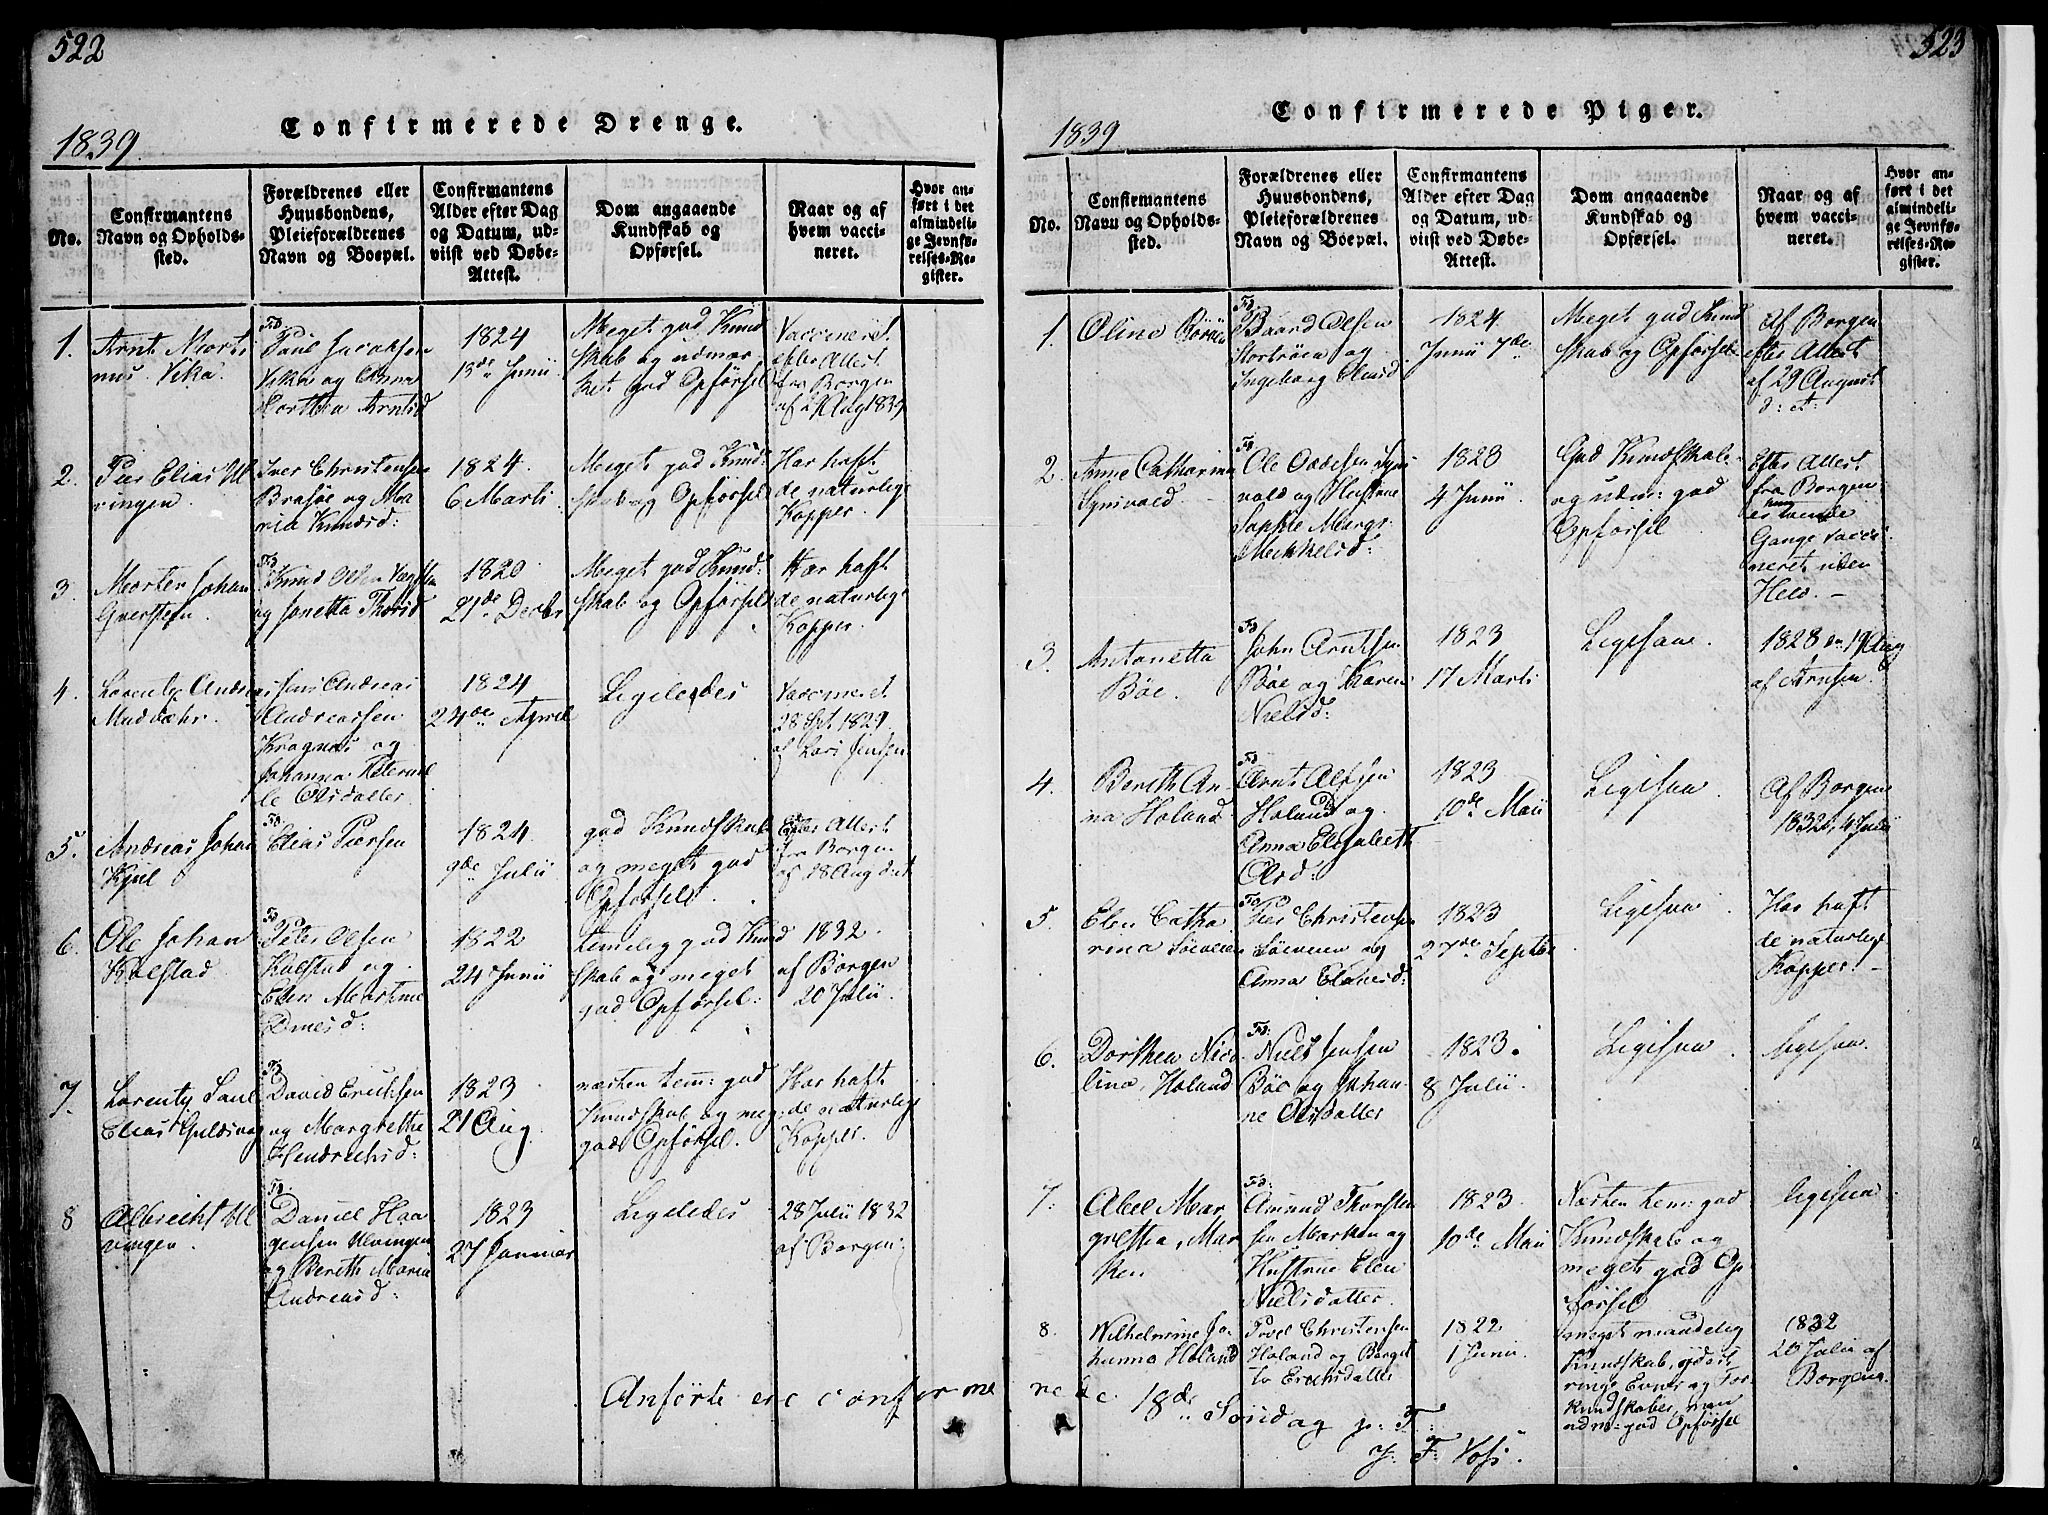 522
1839
Confirmerede Drenge.
No.
Confirmantens
Navn og Opholds-
sted.
Forældrenes eller
Huusbondens,
Pleieforældrenes
Navn og Boepæl.
Confirmantens
Alder efter Dag
og Datum, ud-
viist ved Døbe-
Attest.
Dom angaaende
Kundskab og
Opførsel.
Naar og af
hvem vacci-
neret.
Hvor an-
ført i det
almindeli-
ge Jevnfø-
relses-Re-
gister.
1.
Arnt Morti
nus Vika.
Fd
Paul Jacobsen
Vika og Anna
Dorthea Arntsd
1824
13de Junii
Meget god Kund
skab og udmær
ket god Opførsel
Vaccineret
efter Attest
fra Borgen
af 29 Aug 1839
2.
Peer Elias Ul
vingen.
Iver Christensen
Brasøe og Ma
ria Knudsd:
1824
6 Marti
Meget god Kund
skab og Opførsel
Har haft
de naturlige
Kopper.
3.
Morten Johan
Fd
Knud Olsen
og Jonetta Thorsd
1820
21de Decbr
Meget god Kund
skab og Opførsel
Har haft
de naturlige
Kopper.
4.
Lorentz Andreas
Jens Andreas
Andreassen
Kragnæs og
Johanna Peternel
le Olsdatter
1824
24de April
Ligeledes
Vaccineret
28 Spt. 1829
af Lars Jensen
5.
Andreas Johan
Fd
Elias Peersen
1824
9de Julii
god Kundskab
og meget god
Opførsel.
Efter Attest
fra Borgen
af 28 Aug d: A
6.
Ole Johan
Kolstad
Fd
Peter Olsen
Kolstad og
Elen Martine
1822
24 Junii
temelig god Kund
skab og meget
god Opførsel:
1832
af Borgen
20 Julii
7.
Lorentz Paul
Elias
Fd
David Erichsen
og Margrethe
Hendrichsd:
1823
21 Aug
næsten tem: god
Kundskab og meg:
god Opførsel.
Har haft
de naturlige
Kopper.
8
Albrecht Ul
vingen.
Fd.
Daniel Haa
gensen Ulvingen
og Bereth Maria
Andreasd:
1823
27 Januar
Ligeledes
28 Julii 1832
af Borgen.
Anførte ere confirme
523
1839
Confirmerede Piger.
No.
Confirmantens
Navn og Opholds-
sted.
Forældrenes eller
Huusbondens,
Pleieforældrenes
Navn og Boepæl.
Confirmantens
Alder efter Dag
og Datum, ud-
viist ved Døbe-
Attest.
Dom angaaende
Kundskab og
Opførsel.
Naar og af
hvem vacci-
neret.
Hvor an-
ført i det
almindeli-
ge Jevnfø-
relses-Re-
gister.
1.
Olina
Fd
Baard Olsen
Stortrøen og
Ingeborg
1824
Junii 7de
Meget god Kund
skab og Opførsel
Af Borgen
efter Attest
af 29 August
d: A:
2.
Anne Catharina
Synsvold
Fd
Ole
vold og Hustrue
Sophie Margr.
Mickkelsd:
1823
4 Junii
God Kundskab
og udm: god
Opførsel
Efter Attest
fra Borgen
er hun
Gange vacci
neret uden
Held. –
3.
Antonetta
Bøe.
Fd
John Arntsen
Bøe og Karen
Nielsd:
1823
17 Marti
Ligesaa.
1828 d. 19 Aug
af Arnsen.
4.
Bereth An
na Holand
Fd
Arnt
Holand og
Anna Elisabeth
Olsd:
1823
10de Maii
Ligesaa
Af Borgen
1832, 4 Julii
5.
Elen Catha
rina
Fd
Peer Christensen
og
Anna
1823
27de Septbr
Ligesaa
Har haft
de naturlige
Kopper. –
6.
Dorthea Nico
lina, Holand
Fd:
Niels Jensen
Bøe og Johan
ne Olsdatter
1823.
8 Julii.
Ligesaa
Ligesaa.
7.
Abel Mar
gretha, Mar
ken
Fd.
Amund Thorsten
sen Marken og
Hustrue Elen
Nielsdatter.
1823
10de Maii
Næsten tem: god
Kundskab og
meget god Op
førsel
ligesaa
8.
Wilhelmine Jo
hanna Holand
Povel Christensen
Holand og Berget
ta Erichsdatter
1822
1 Junii.
meget maadelig
Kundskab, yderst
ringe Evner og For
kundskaber, men
udm: god Opførsel
1832
20 Julii af
Borgen.
rede 18de Søndag p: T:
J: F: Voss.